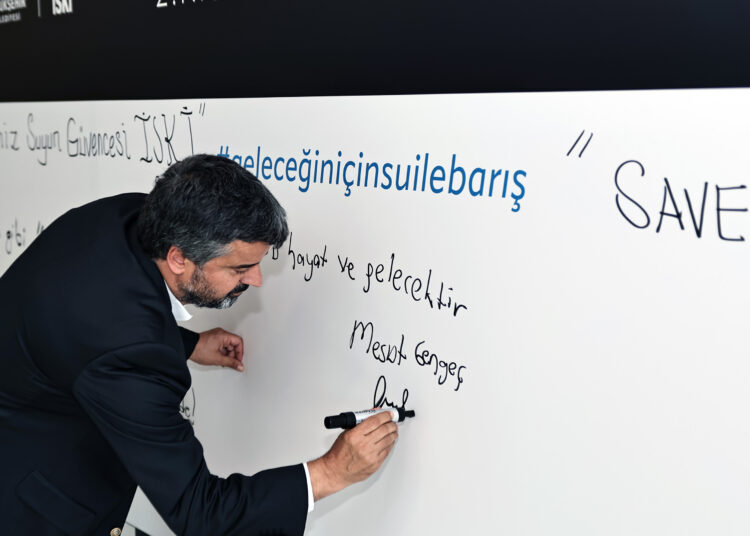 İSKİ
Suyun Güvencesi İSKİ"
#geleceğiniçinsuilebarış
" SAVE
hayat ve gelecektir
Mesut Gengeç